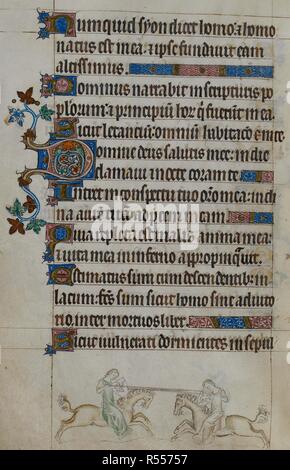 Numquid syon dicet homo: & homo
natus est in ea: & ipse fundavit eam
altissimus.
Dominus narrabit in scripturis po
pulorum: & principum hor̄ qui fuerunt in ea.
Sicut letancium: omnium habitacō ē in te.
Domine deus salutis mee: in die
clamavi: in nocte coram te.
Intret in conspectu tuo orō mea: incli
na aurē tuā ad p̄cem meam.
Quia repleta est malis anima mea:
& vita mea in inferno appropinquavit.
Estimatus sum cum descendentib: in
lacum: factus sum sicut homo sine adiuto
rio inter mortuos liber.
Sicut vulnerati dormientes in sepul
alamy
Image ID: R55757
www.alamy.com